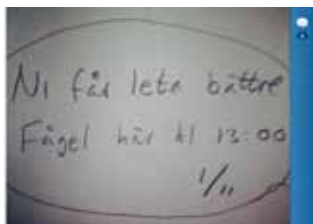 Ni får leta bättre
Fågel här kl 13:00
1/11